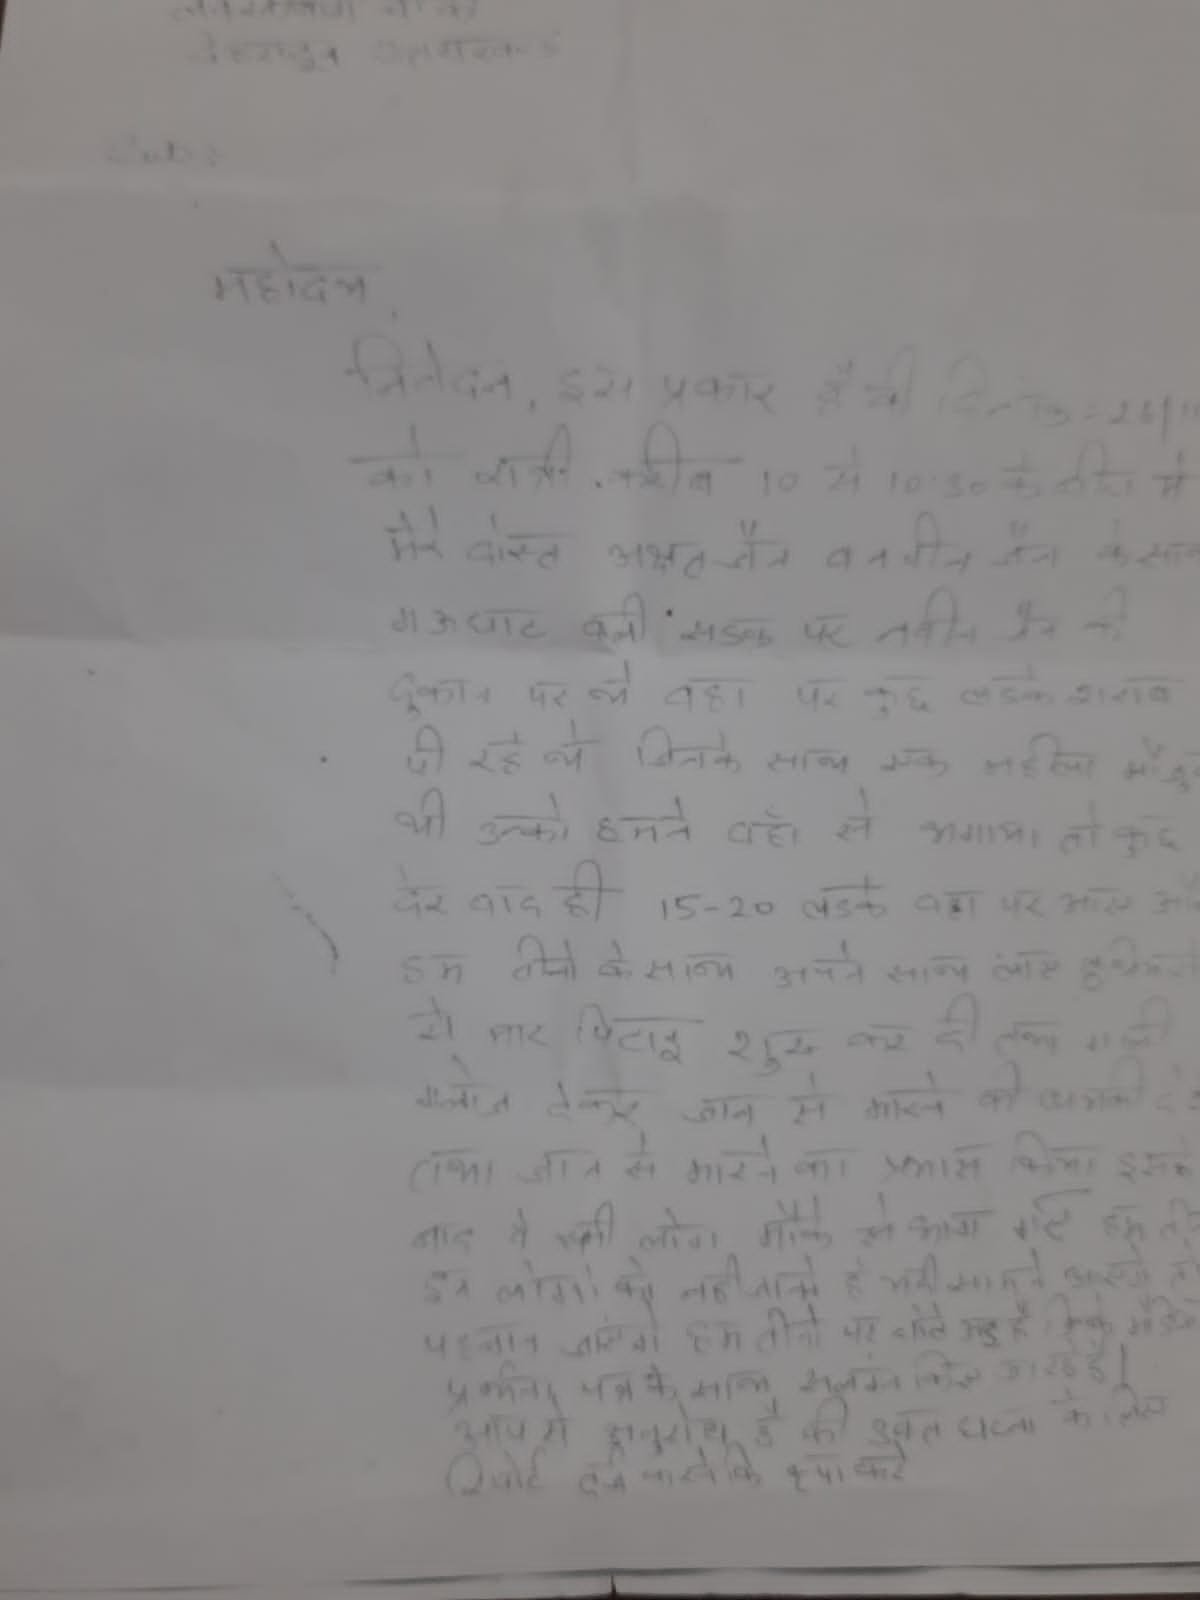 देहरादून उत्तराखण्ड
महोदय,
निवेदन, इस प्रकार है की दिनांक - 26/11
को रात्री करीब 10 से 10:30 के बीच मे
मेरे दोस्त अक्षत जैन व नवीन जैन के साथ
गऊघाट वाली सडक पर नवीन जैन की
दुकान पर थे वहा पर कुछ लडके शराब
पी रहे थे जिनके साथ एक महिला
थी उनको हमने वहाँ से भगाया तो कुछ
देर बाद ही 15-20 लडके वहा पर आए
हम तीनो के साथ अपने साथ लाए
से मार पिटाइ शुरू कर दी तथा गाली
गलोज देकर जान से मारने की धमकी
तथा जान से मारने का प्रयास किया इसके
बाद वे सभी लोग मौके से भाग गए हम
इन लोगो को नही जानते है सामने
पहचान जाएंगे हम तीनो पर चोटे आई है जिनके
प्रार्थना पत्र के साथ सलंगन किए जा रहे है।
आप से अनुरोध है की उक्त घटना के लिए
रिपोर्ट दर्ज करने कि कृपा करे